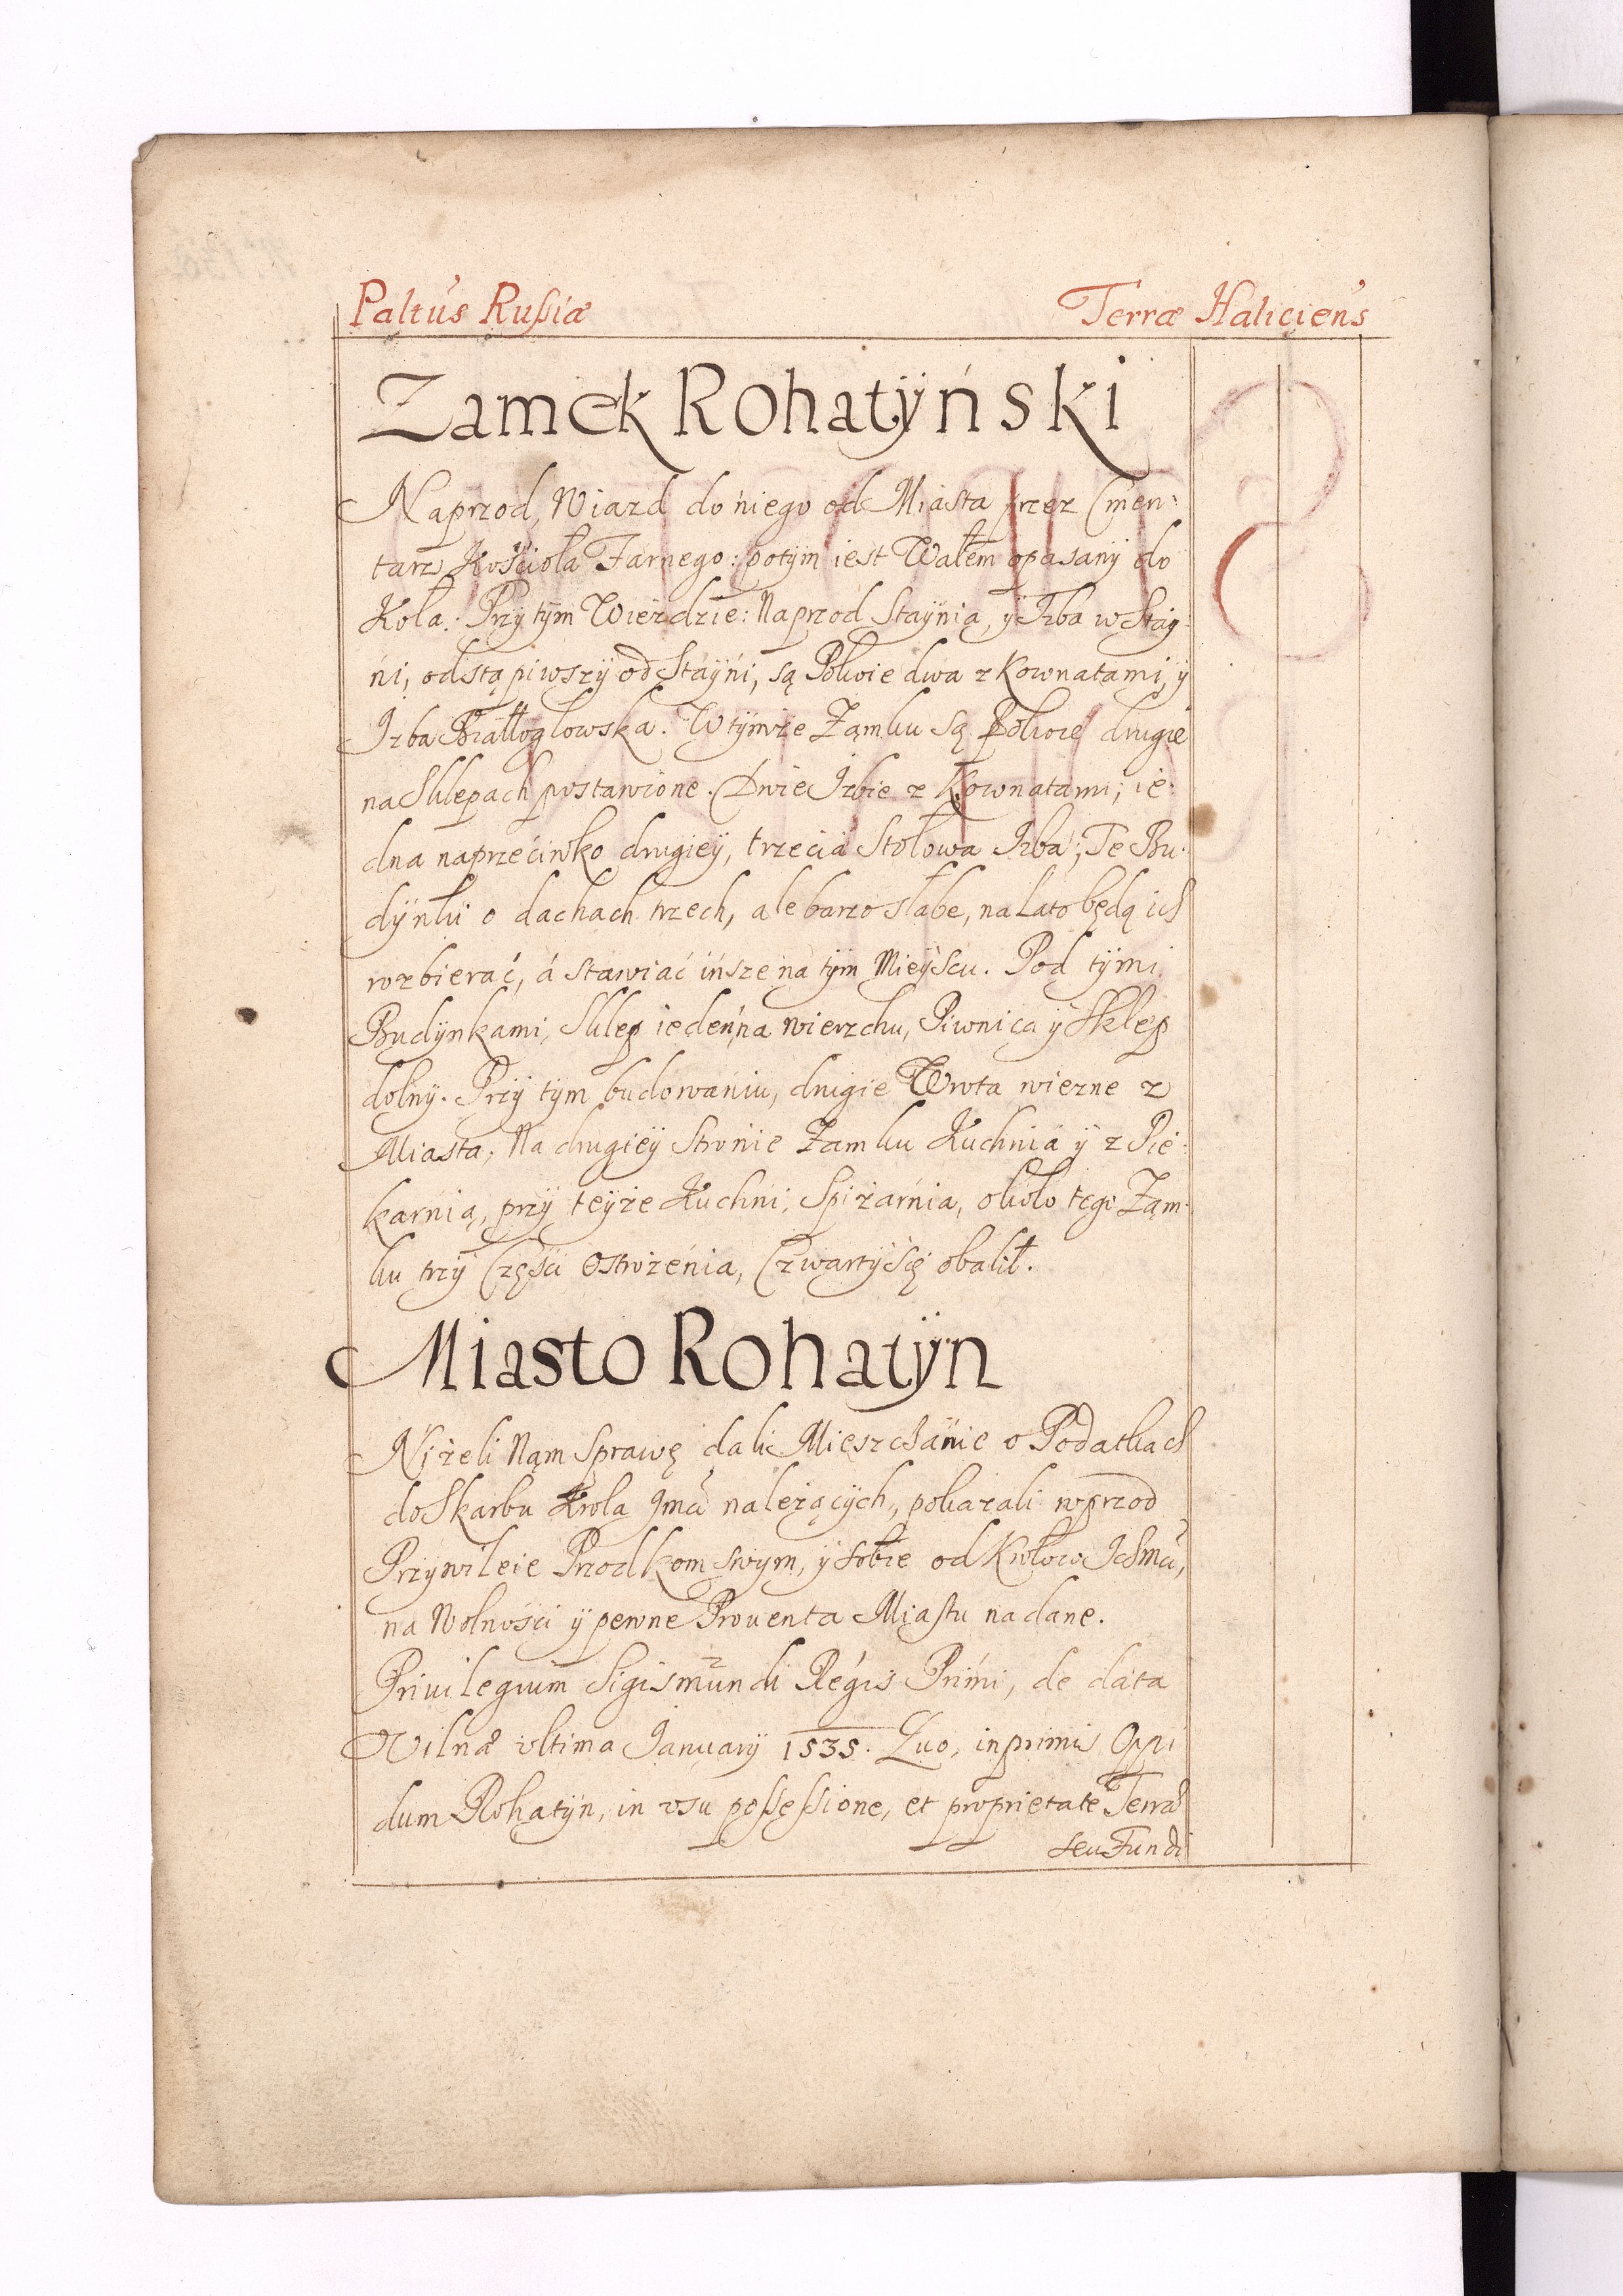 Paltus Rußiæ Terræ Haliciens
Zamek Rohatÿński
Naprzod, Wiazd do niego od Miasta przez Cmen:
tarz Kośćioła Farnego: potÿm iest Wałem opasanÿ do
Koła: Przÿ tÿm Wieździe: Naprzod Staÿnia, ÿ Izba w Staÿ:
ńi, odstąpiwszÿ od Staÿńi, są Pokoie dwa z Kownatami, ÿ
Izba Białłogłowska. W tÿmże Zamku są Pokoie drugie
na Sklepach postawione. Dwie Izbie z Kownatami; ie:
dna naprzećiwko drugieÿ, trzecia Stołowa Izba; Te Bu:
dÿnki o dachach trzech, ale barzo słabe, na Lato będą ich
rozbierać, á stawiać ińsze na tÿm Mieÿscu. Pod tÿmi
Budÿnkami, Sklep ieden, na wierzchu, Piwnica ÿ Sklep
dolnÿ. Przÿ tÿm budowaniu, drugie Wrota wiezne z
Miasta; Na drugieÿ Stronie Zamku Kuchnia ÿ z Pie:
karnią, przÿ teÿże Kuchni; Spiżarnia, około tego Zam:
ku trzÿ Częśći Ostrożenia, Czwartÿ śię obalił.
Miasto Rohatÿn
Niżeli Nam Sprawę dali Mieszczánie o Podatkach
do Skarbu Krola Jmci należącÿch, pokazali wprzod
Przÿwileie Przodkom swym, ÿ sobie od Krolow Ichmći,
na Wolnośći ÿ pewne Prouenta Miastu nadane.
Priuilegium Sigismundi Régis Primi, de data
Wilnæ vltima Januarÿ 1535. Quo, inprimis Oppi
dum Rohatÿn, in vsu poſſeſſione, et proprietate Terræ
seu Fundi